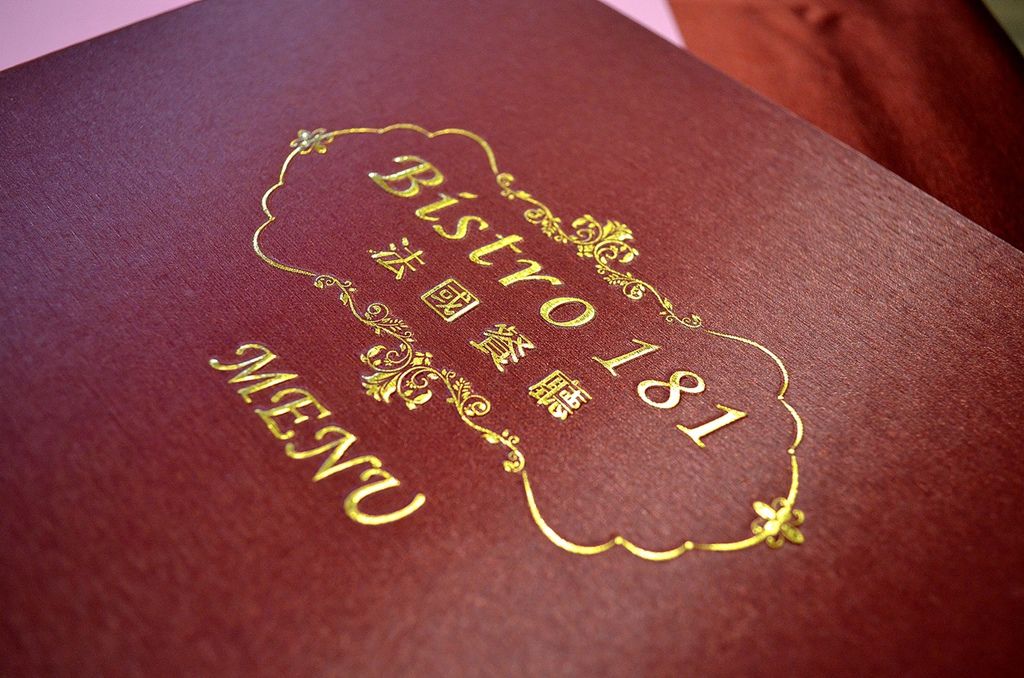 Bistro 181
法國餐廳
MENU